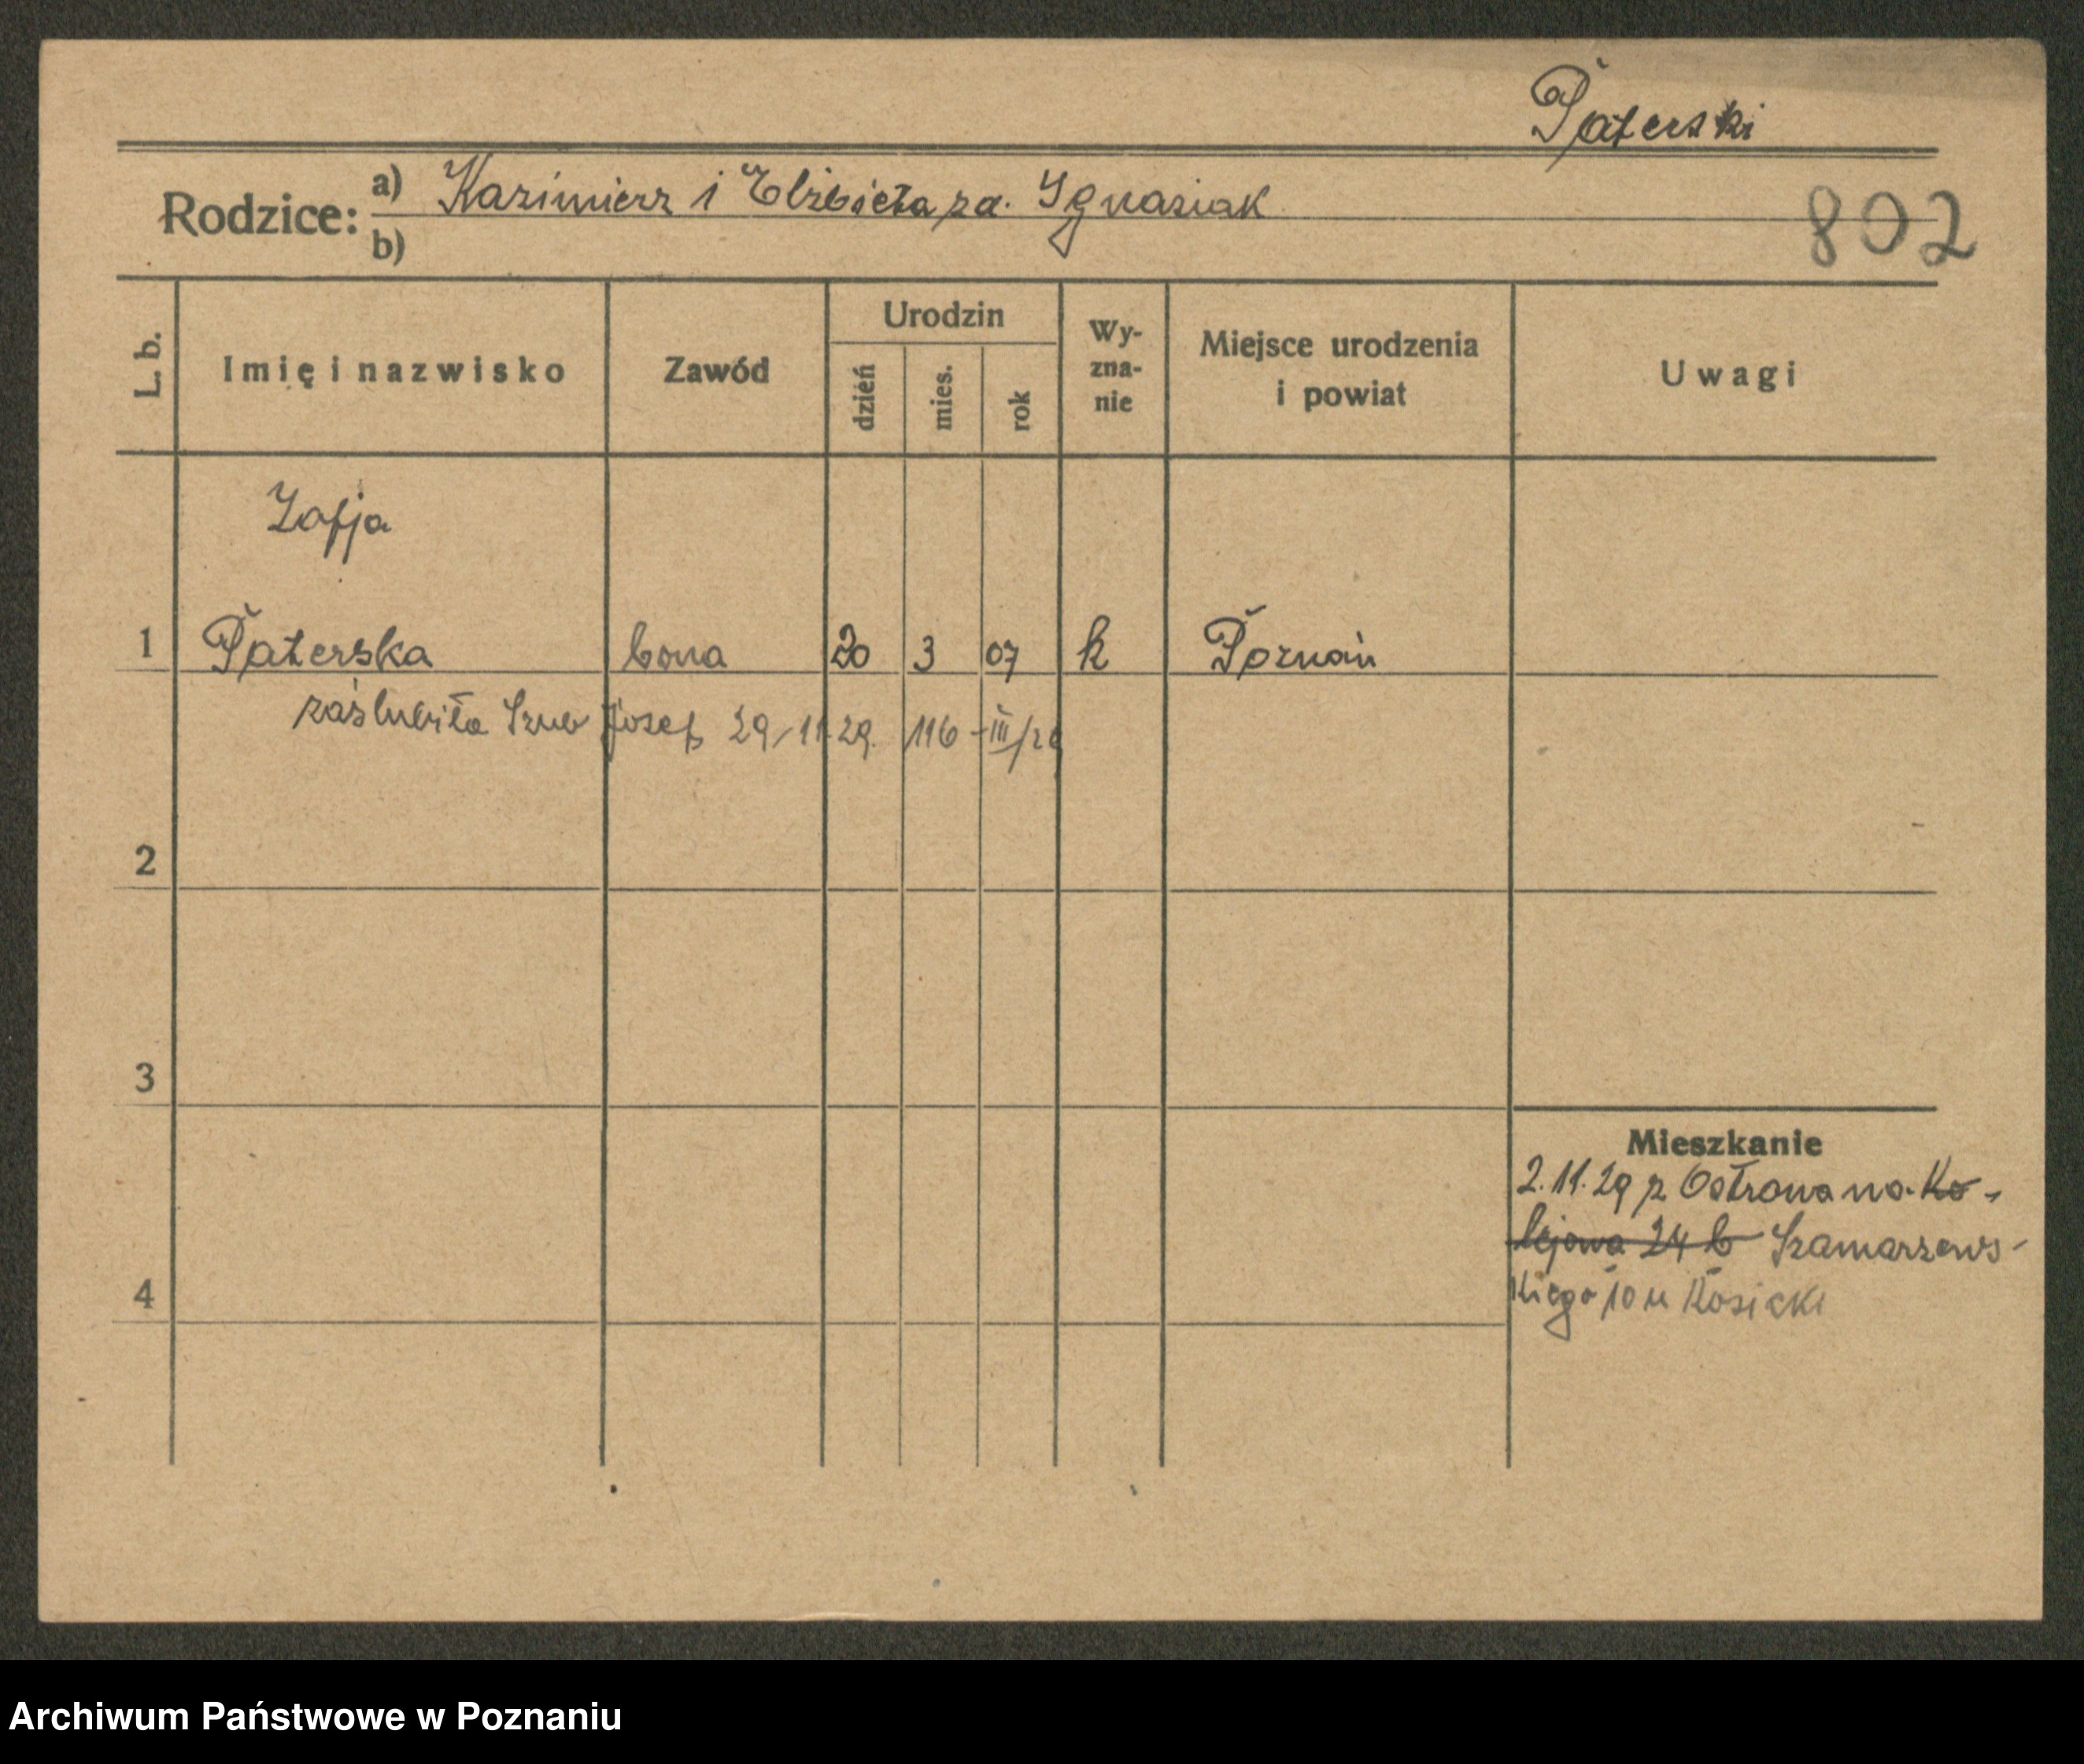 Paterski
Rodzice: a) Kazimierz i Elżbieta za. Ignasiak
b)
802
L. b.
Imię i nazwisko
Zawód
Urodzin
dzień
mies.
rok
Wy-
zna-
nie
Miejsce urodzenia
i powiat
Uwagi
Zofja
1 Paterska bona 20 3 07 k Poznań
zaślubiła Szub Józef 29/11 29. 116 - III/29
2
3
Mieszkanie
2.11.29 z Ostrowa na Ko-
lejowa 24 b Szamarzews-
4
kiego 10 u Kosicki
Archiwum Państwowe w Poznaniu